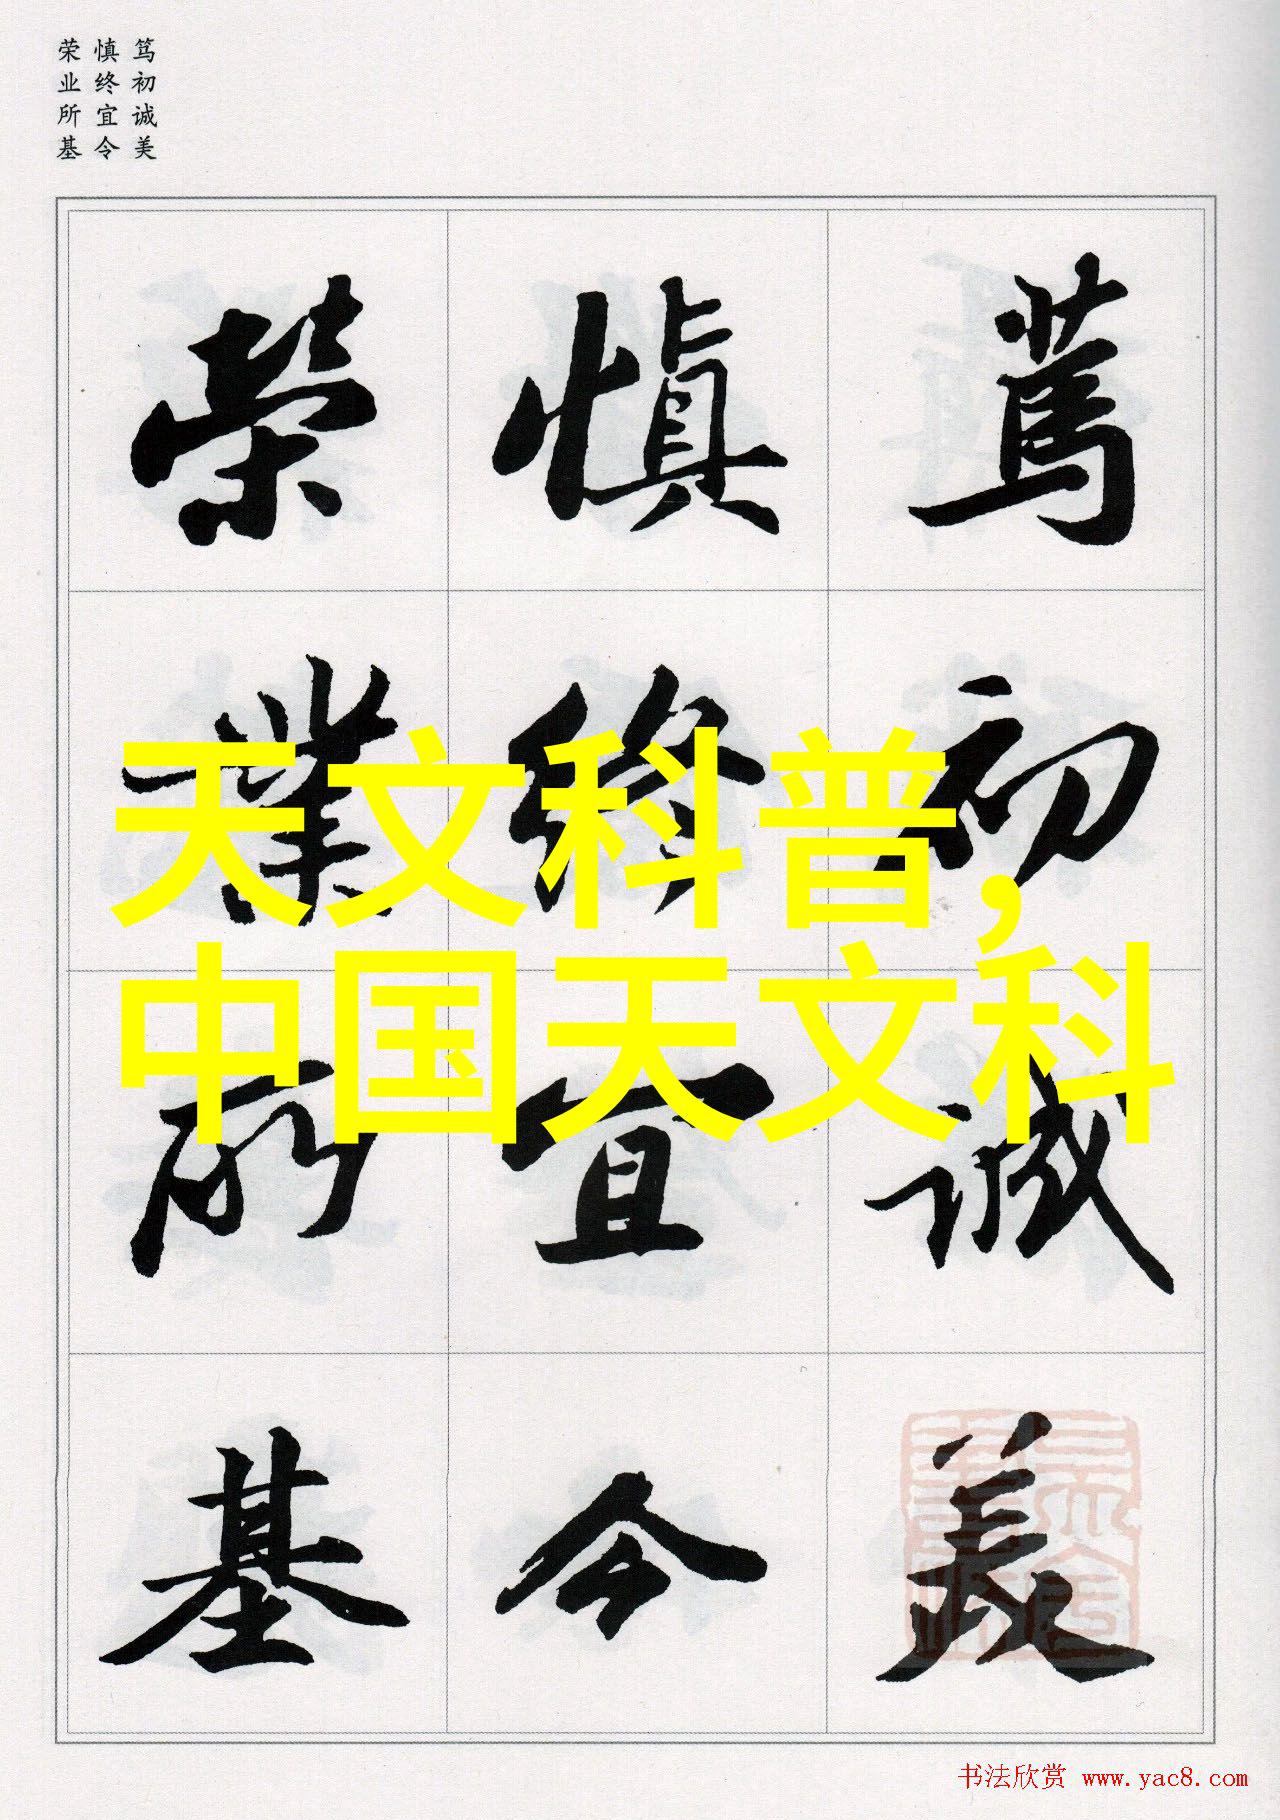 笃初诚美
慎终宜令
荣业所基
篤初誠美
慎終宜令
榮業所基
天文科普，
中国天文科
书法欣赏 www.yac8.com